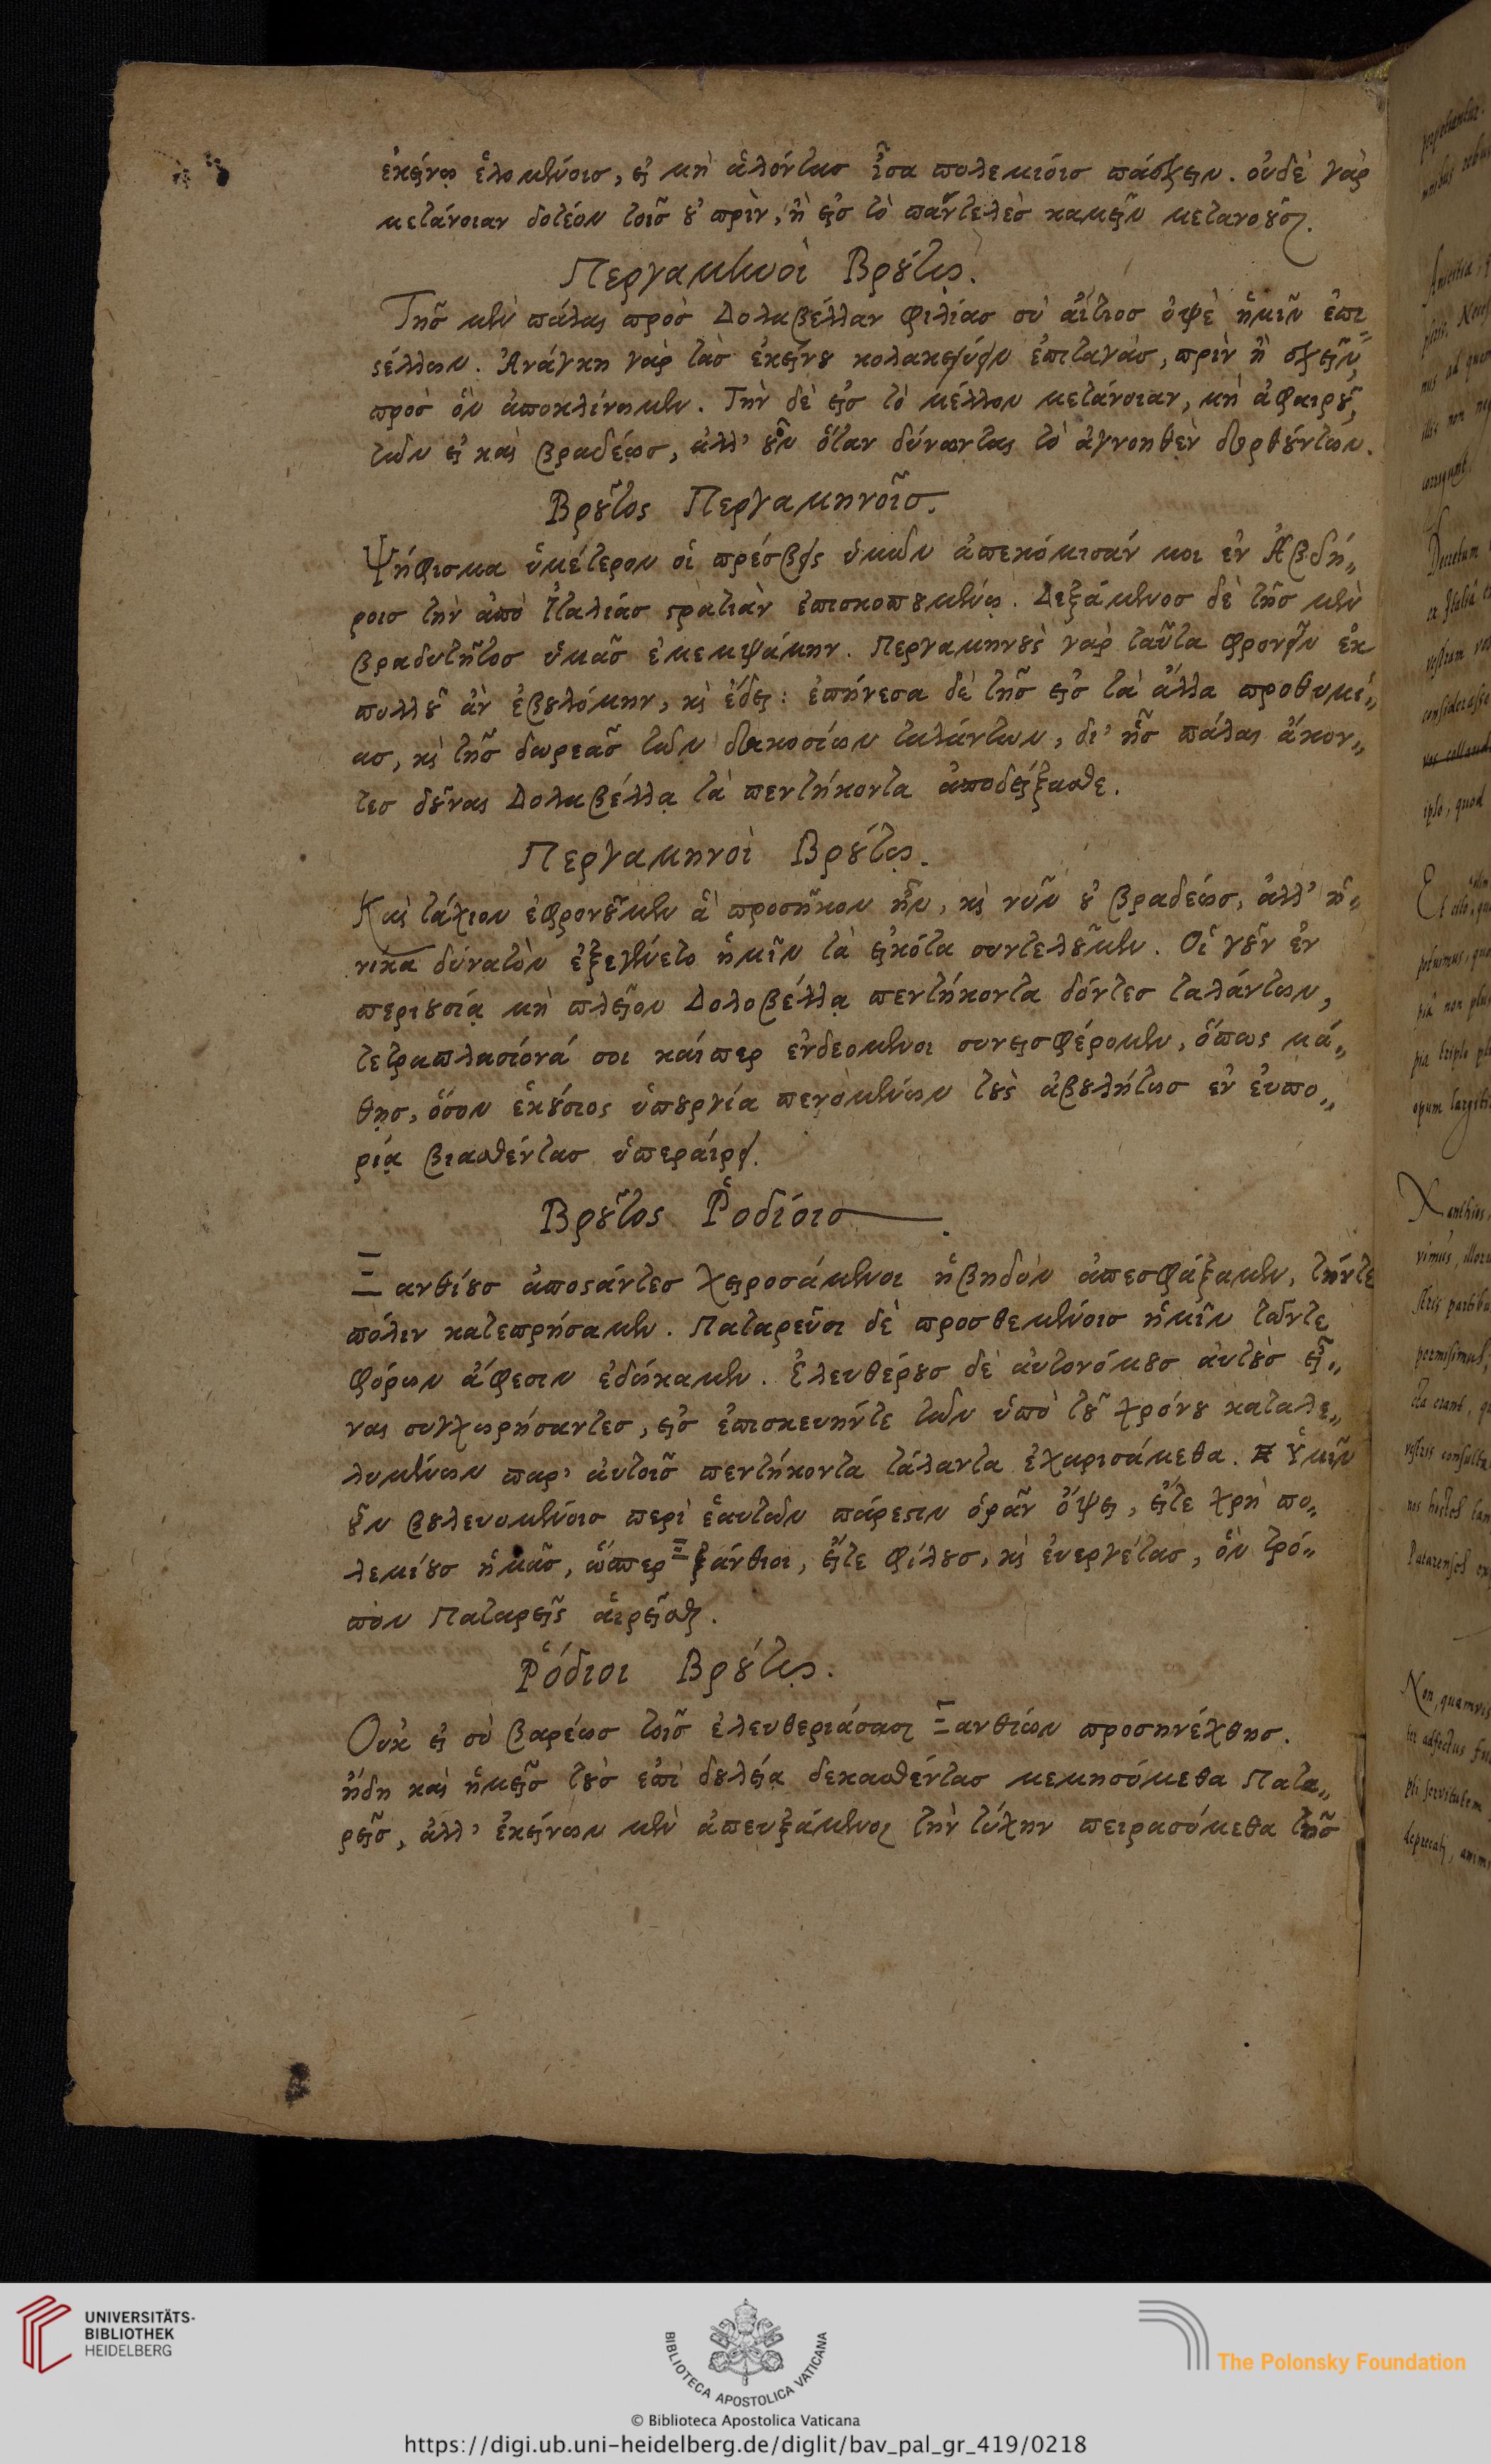 ἐκείνῳ ἑλομένοις, εἰ μὴ ἁλόντας ἶσα πολεμίοις πάσχειν. οὐδὲ γὰρ
μετάνοιαν δοτέον τοῖς οὐ πρὶν, ἢ εἰς τὸ παντελὲς καμεῖν μετανοοῦσι.
Περγαμηνοὶ Βρούτῳ.
Τῆς μὲν πάλαι πρὸς Δολαβέλλαν φιλίας σὺ αἴτιος ὀψὲ ἡμῖν ἐπι„
στέλλων. Ἀνάγκη γὰρ τὰς ἐκείνου κολακεύειν ἐπιταγὰς, πρὶν ἢ σχεῖν,
πρὸς ὃν ἀποκλίνωμεν. Τὴν δὲ εἰς τὸ μέλλον μετάνοιαν, μὴ ἀφαιροῦ,
τῶν εἰ καὶ βραδέως, ἀλλ' οὖν ὅταν δύνωνται τὸ ἀγνοηθὲν διορθούντων.
Βροῦτος Περγαμηνοῖς.
Ψήφισμα ὑμέτερον οἱ πρέσβεις ὑμῶν ἀπεκόμισάν μοι ἐν Ἀβδή„
ροις τὴν ἀπὸ Ἰταλίας στρατιὰν ἐπισκοπουμένῳ. Δεξάμενος δὲ τῆς μὲν
βραδυτῆτος ὑμᾶς ἐμεμψάμην. Περγαμηνοὺς γὰρ ταῦτα φρονεῖν ἐκ
πολλοῦ ἂν ἐβουλόμην, καὶ ἔδει: ἐπήνεσα δὲ τῆς εἰς τὰ ἄλλα προθυμί„
ας, καὶ τῆς δωρεᾶς τῶν διακοσίων ταλάντων, δι' ἧς πάλαι ἄκον„
τες δοῦναι Δολαβέλλᾳ τὰ πεντήκοντα ἀποδείξασθε.
Περγαμηνοὶ Βρούτῳ.
Καὶ τάχιον ἐφρονοῦμεν ἃ προσῆκον ἦν, καὶ νῦν οὐ βραδέως, ἀλλ' ἡ„
νίκα δύνατὸν ἐξεγένετο ἡμῖν τὰ εἰκότα συντελοῦμεν. Οἱ γοῦν ἐν
περιουσίᾳ μὴ πλεῖον Δολοβέλλᾳ πεντήκοντα δόντες ταλάντων,
τετραπλασίονά σοι καίπερ ἐνδεομενοι συνεισφέρομεν, ὅπως μά„
θῃς, ὅσον ἑκούσιος ὑπουργία πενομένων τοὺς ἀβουλήτως ἐν εὐπο„
ρίᾳ βιασθέντας ὑπεραίρει.
Βροῦτος Ῥοδίοις.
Ξανθίους ἀποστάντες χειροσάμενοι ἡβηδὸν ἀπεσφάξαμεν, τήντε
πόλιν κατεπρήσαμεν. Παταρεῦσι δὲ προσθεμένοις ἡμῖν τῶντε
φόρων ἄφεσιν ἐδώκαμεν. Ἐλευθέρους δὲ αὐτονόμους αὐτοὺς εἶ„
ναι συγχωρήσαντες, εἰς ἐπισκευήντε τῶν ὑπὸ τοῦ χρόνου καταλε„
λυμένων παρ' αὐτοῖς πεντήκοντα τάλαντα ἐχαρισάμεθα. Ὑμῖν
οὖν βουλευομένοις περὶ ἑαυτῶν πάρεστιν ὁρᾶν ὄψει, εἴτε χρὴ πο„
λεμίους ἡμᾶς, ὥσπερ Ξάνθιοι, εἴτε φίλους, καὶ εὐεργέτας, ὃν τρό„
πον Παταρεῖς αἱρεῖσθαι.
Ῥόδιοι Βρούτῳ.
Οὐκ εἰ σὺ βαρέως τοῖς ἐλευθεριάσασι Ξανθίων προσηνέχθης.
ἤδη καὶ ἡμεῖς τοὺς ἐπὶ δουλείᾳ δεκασθέντας μεμησόμεθα Πατα„
ρεῖς, ἀλλ' ἐκείνων μὲν ἀπευξάμενοι τὴν τύχην πειρασόμεθα τῆς
UNIVERSITÄTS-
BIBLIOTHEK
HEIDELBERG
BIBLIOTECA APOSTOLICA VATICANA
The Polonsky Foundation
© Biblioteca Apostolica Vaticana
https://digi.ub.uni-heidelberg.de/diglit/bav_pal_gr_419/0218